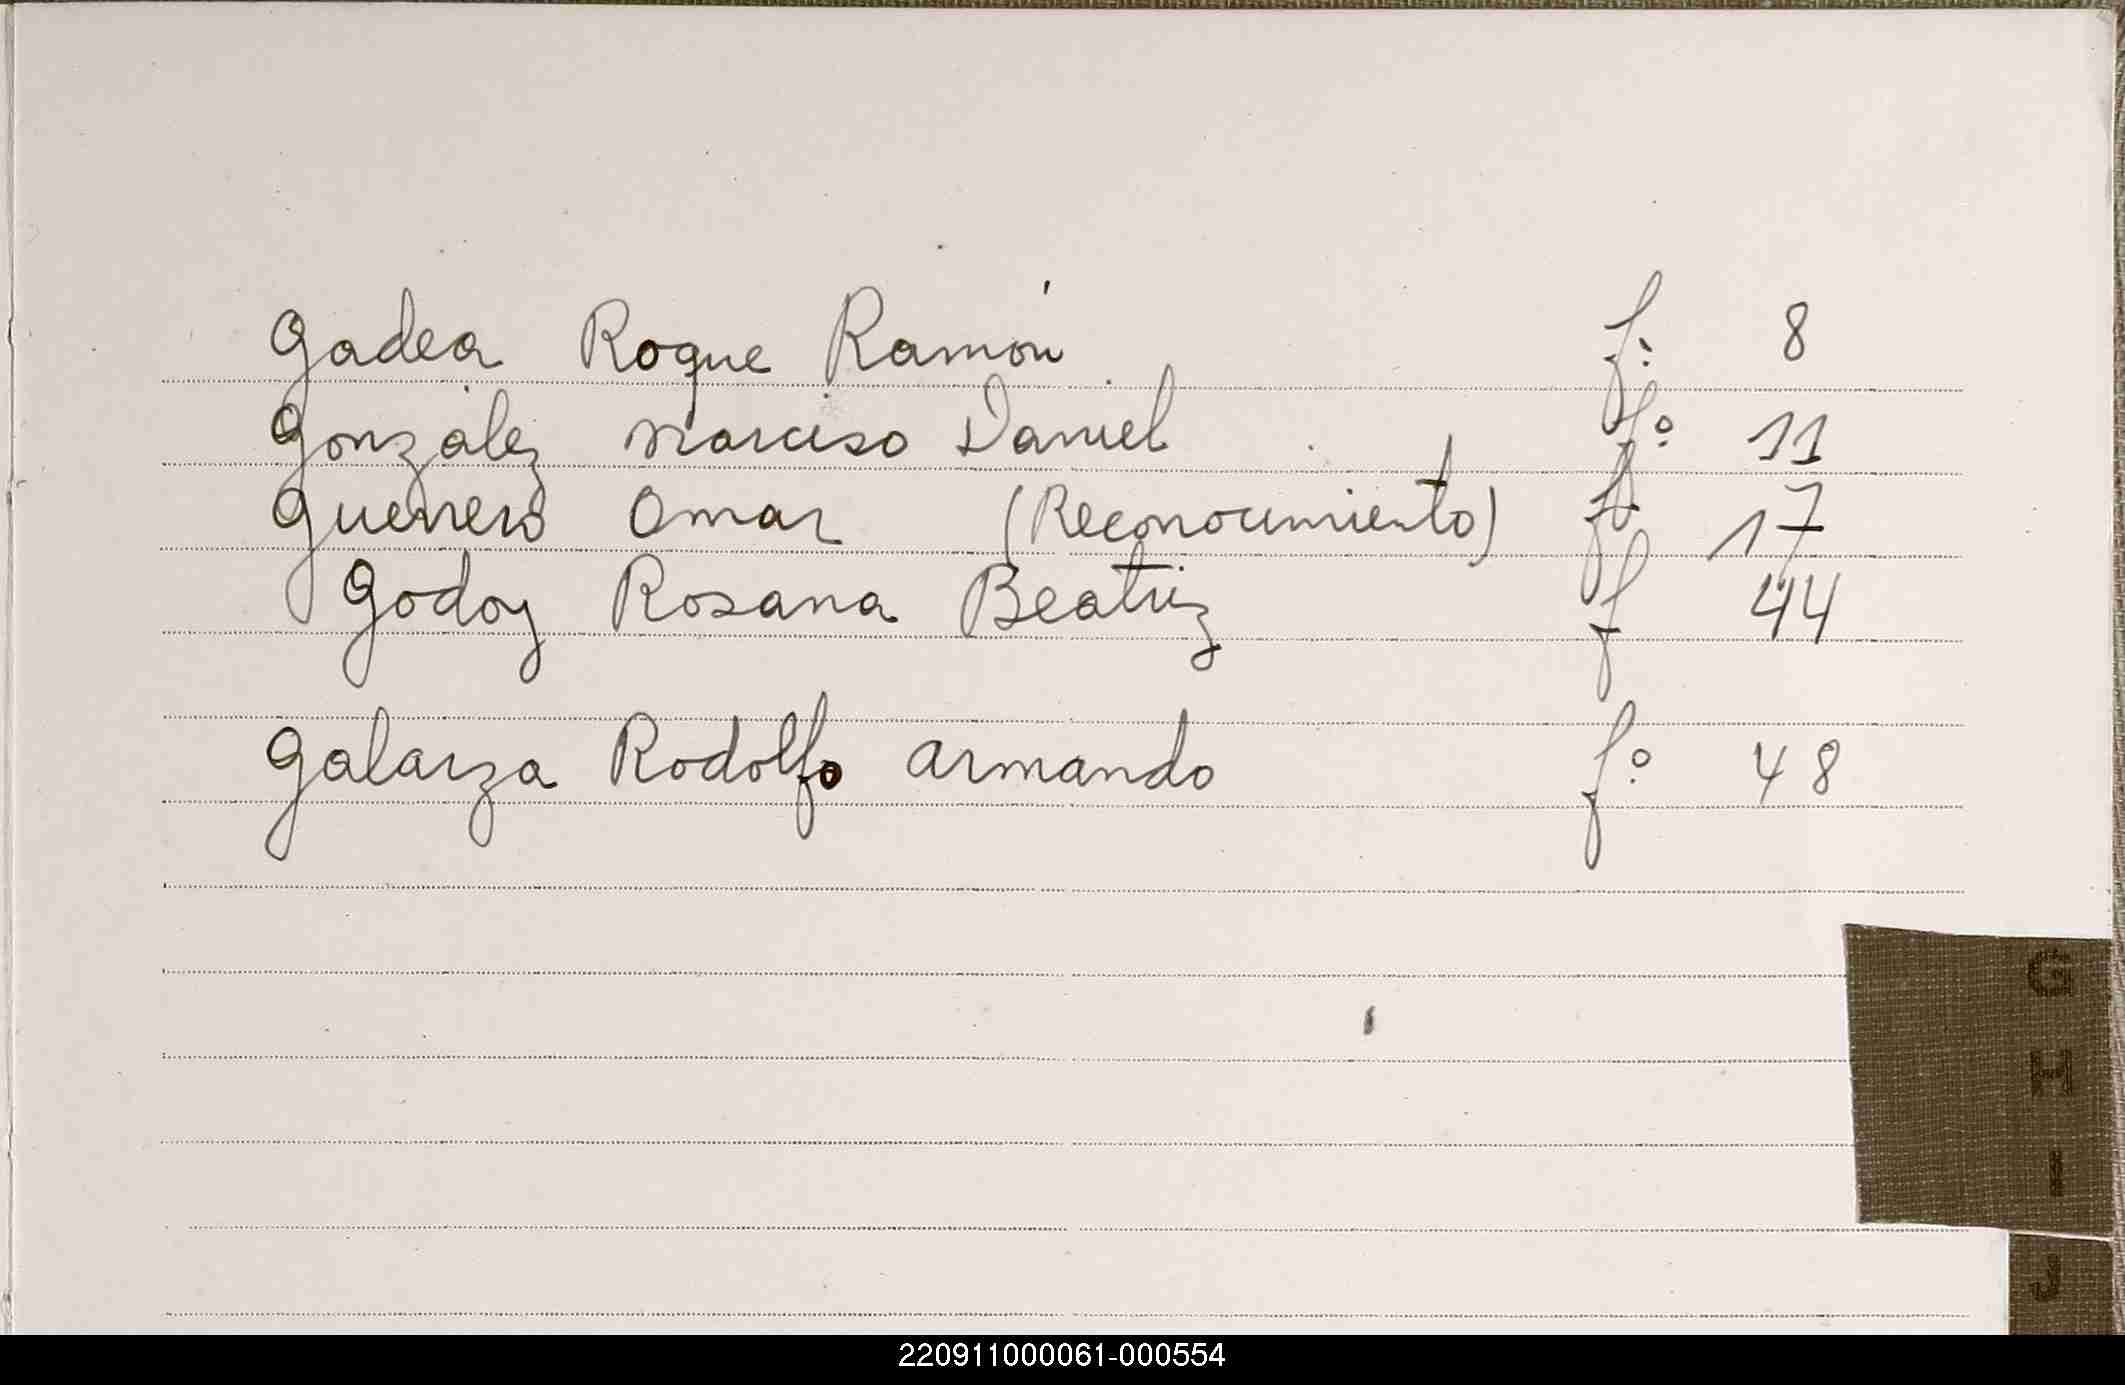 Gadea Roque Ramón f: 8
González Narciso Daniel fº 11
Guerrero Omar (Reconocimiento) f 17
Godoy Rosana Beatriz f 44
Galarza Rodolfo Armando fº 48
G
H
I
J
220911000061-000554